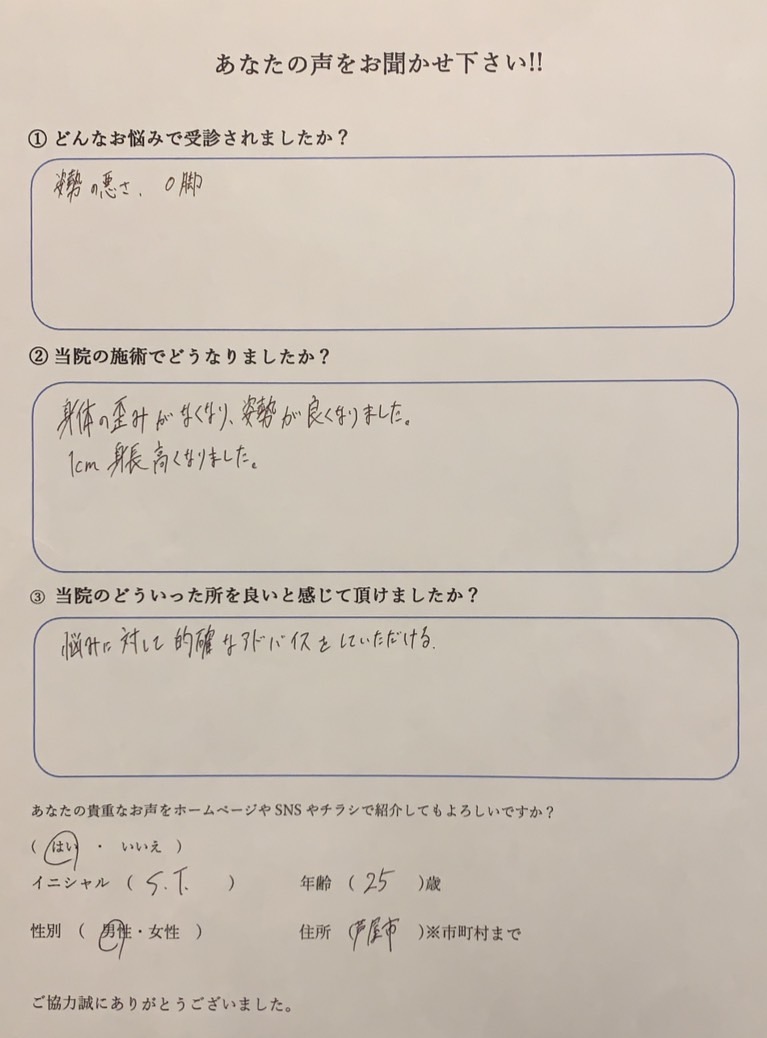 あなたの声をお聞かせ下さい!!
① どんなお悩みで受診されましたか？
姿勢の悪さ、O脚
② 当院の施術でどうなりましたか？
身体の歪みがなくなり、姿勢が良くなりました。
1cm 身長高くなりました。
③ 当院のどういった所を良いと感じて頂けましたか？
悩みに対して的確なアドバイスをしていただける.
あなたの貴重なお声をホームページやSNSやチラシで紹介してもよろしいですか？
( はい ・ いいえ )
イニシャル ( S.T. ) 年齢 ( 25 )歳
性別 ( 男性・女性 ) 住所 (芦屋市 )※市町村まで
ご協力誠にありがとうございました。